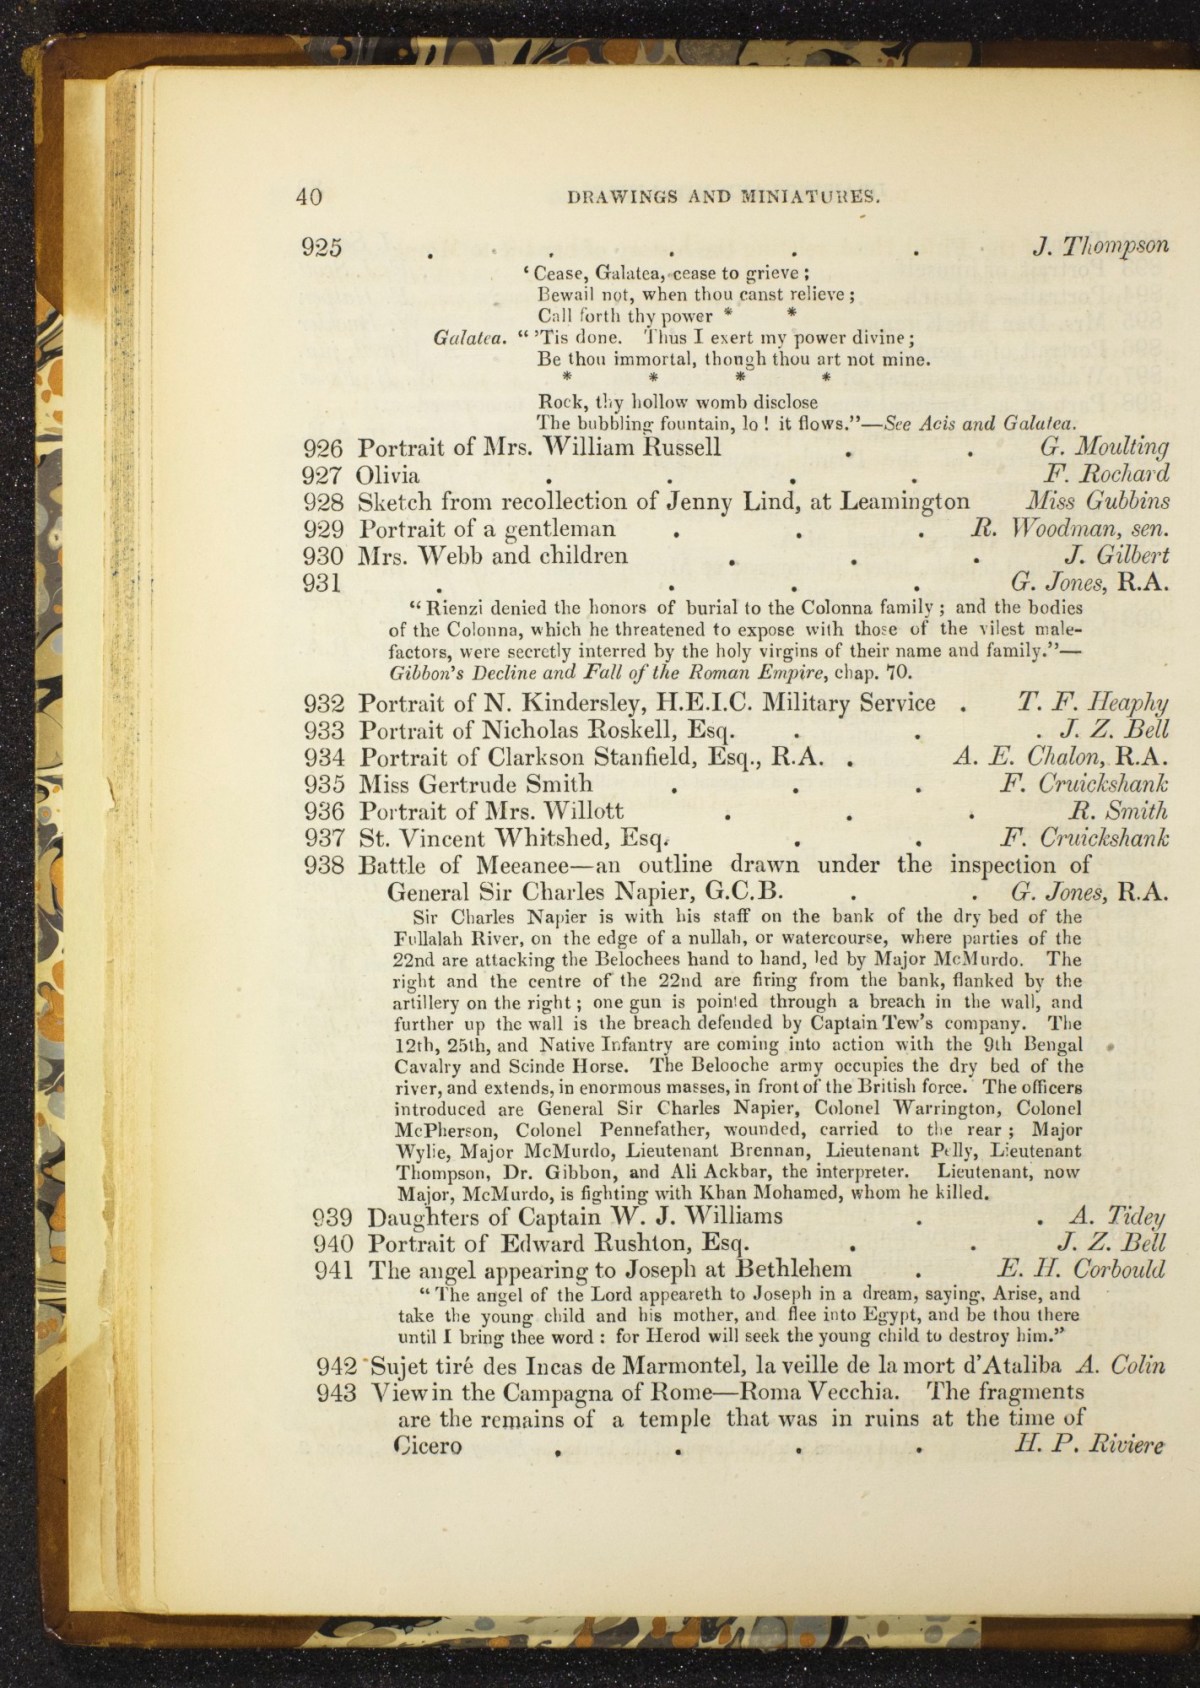 40 DRAWINGS AND MINIATURES.
925 . . . . . J. Thompson
‘ Cease, Galatea, cease to grieve ;
Bewail not, when thou canst relieve ;
Call forth thy power * *
Galatea. “ ’Tis done. Thus I exert my power divine ;
Be thou immortal, though thou art not mine.
* * * *
Rock, thy hollow womb disclose
The bubbling fountain, lo ! it flows.”—See Acis and Galatea.
926 Portrait of Mrs. William Russell . . G. Moulting
927 Olivia . . . . F. Rochard
928 Sketch from recollection of Jenny Lind, at Leamington Miss Gubbins
929 Portrait of a gentleman . . . R. Woodman, sen.
930 Mrs. Webb and children . . . J. Gilbert
931 . . . . G. Jones, R.A.
“ Rienzi denied the honors of burial to the Colonna family ; and the bodies
of the Colonna, which he threatened to expose with those of the vilest male-
factors, were secretly interred by the holy virgins of their name and family.”—
Gibbon’s Decline and Fall of the Roman Empire, chap. 70.
932 Portrait of N. Kindersley, H.E.I.C. Military Service . T. F. Heaphy
933 Portrait of Nicholas Roskell, Esq. . . . J. Z. Bell
934 Portrait of Clarkson Stanfield, Esq., R.A. . A. E. Chalon, R.A.
935 Miss Gertrude Smith . . . F. Cruickshank
936 Portrait of Mrs. Willott . . . R. Smith
937 St. Vincent Whitshed, Esq. . . F. Cruickshank
938 Battle of Meeanee—an outline drawn under the inspection of
General Sir Charles Napier, G.C.B. . . G. Jones, R.A.
Sir Charles Napier is with his staff on the bank of the dry bed of the
Fullalah River, on the edge of a nullah, or watercourse, where parties of the
22nd are attacking the Belochees hand to hand, led by Major McMurdo. The
right and the centre of the 22nd are firing from the bank, flanked by the
artillery on the right ; one gun is pointed through a breach in the wall, and
further up the wall is the breach defended by Captain Tew’s company. The
12th, 25th, and Native Infantry are coming into action with the 9th Bengal
Cavalry and Scinde Horse. The Belooche army occupies the dry bed of the
river, and extends, in enormous masses, in front of the British force. The officers
introduced are General Sir Charles Napier, Colonel Warrington, Colonel
McPherson, Colonel Pennefather, wounded, carried to the rear ; Major
Wylie, Major McMurdo, Lieutenant Brennan, Lieutenant Pelly, Lieutenant
Thompson, Dr. Gibbon, and Ali Ackbar, the interpreter. Lieutenant, now
Major, McMurdo, is fighting with Khan Mohamed, whom he killed.
939 Daughters of Captain W. J. Williams . . A. Tidey
940 Portrait of Edward Rushton, Esq. . . J. Z. Bell
941 The angel appearing to Joseph at Bethlehem . E. H. Corbould
“ The angel of the Lord appeareth to Joseph in a dream, saying, Arise, and
take the young child and his mother, and flee into Egypt, and be thou there
until I bring thee word : for Herod will seek the young child to destroy him.”
942 Sujet tiré des Incas de Marmontel, la veille de la mort d’Ataliba A. Colin
943 View in the Campagna of Rome—Roma Vecchia. The fragments
are the remains of a temple that was in ruins at the time of
Cicero . . . . H. P. Riviere